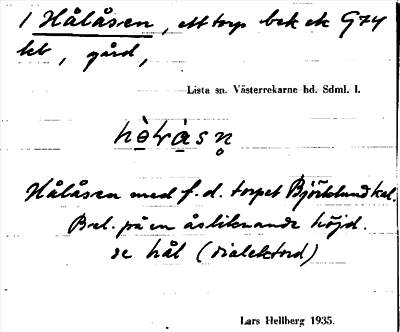 1 Hålåsen, ett torp bek ek G74
kt, gård,
Lista sn. Västerrekarne hd. Sdml. l.
Hålåsen med f. d. torpet Björklund kal.
Bel. på en åsliknande höjd.
se hål (dialektord)
Lars Hellberg 1935.